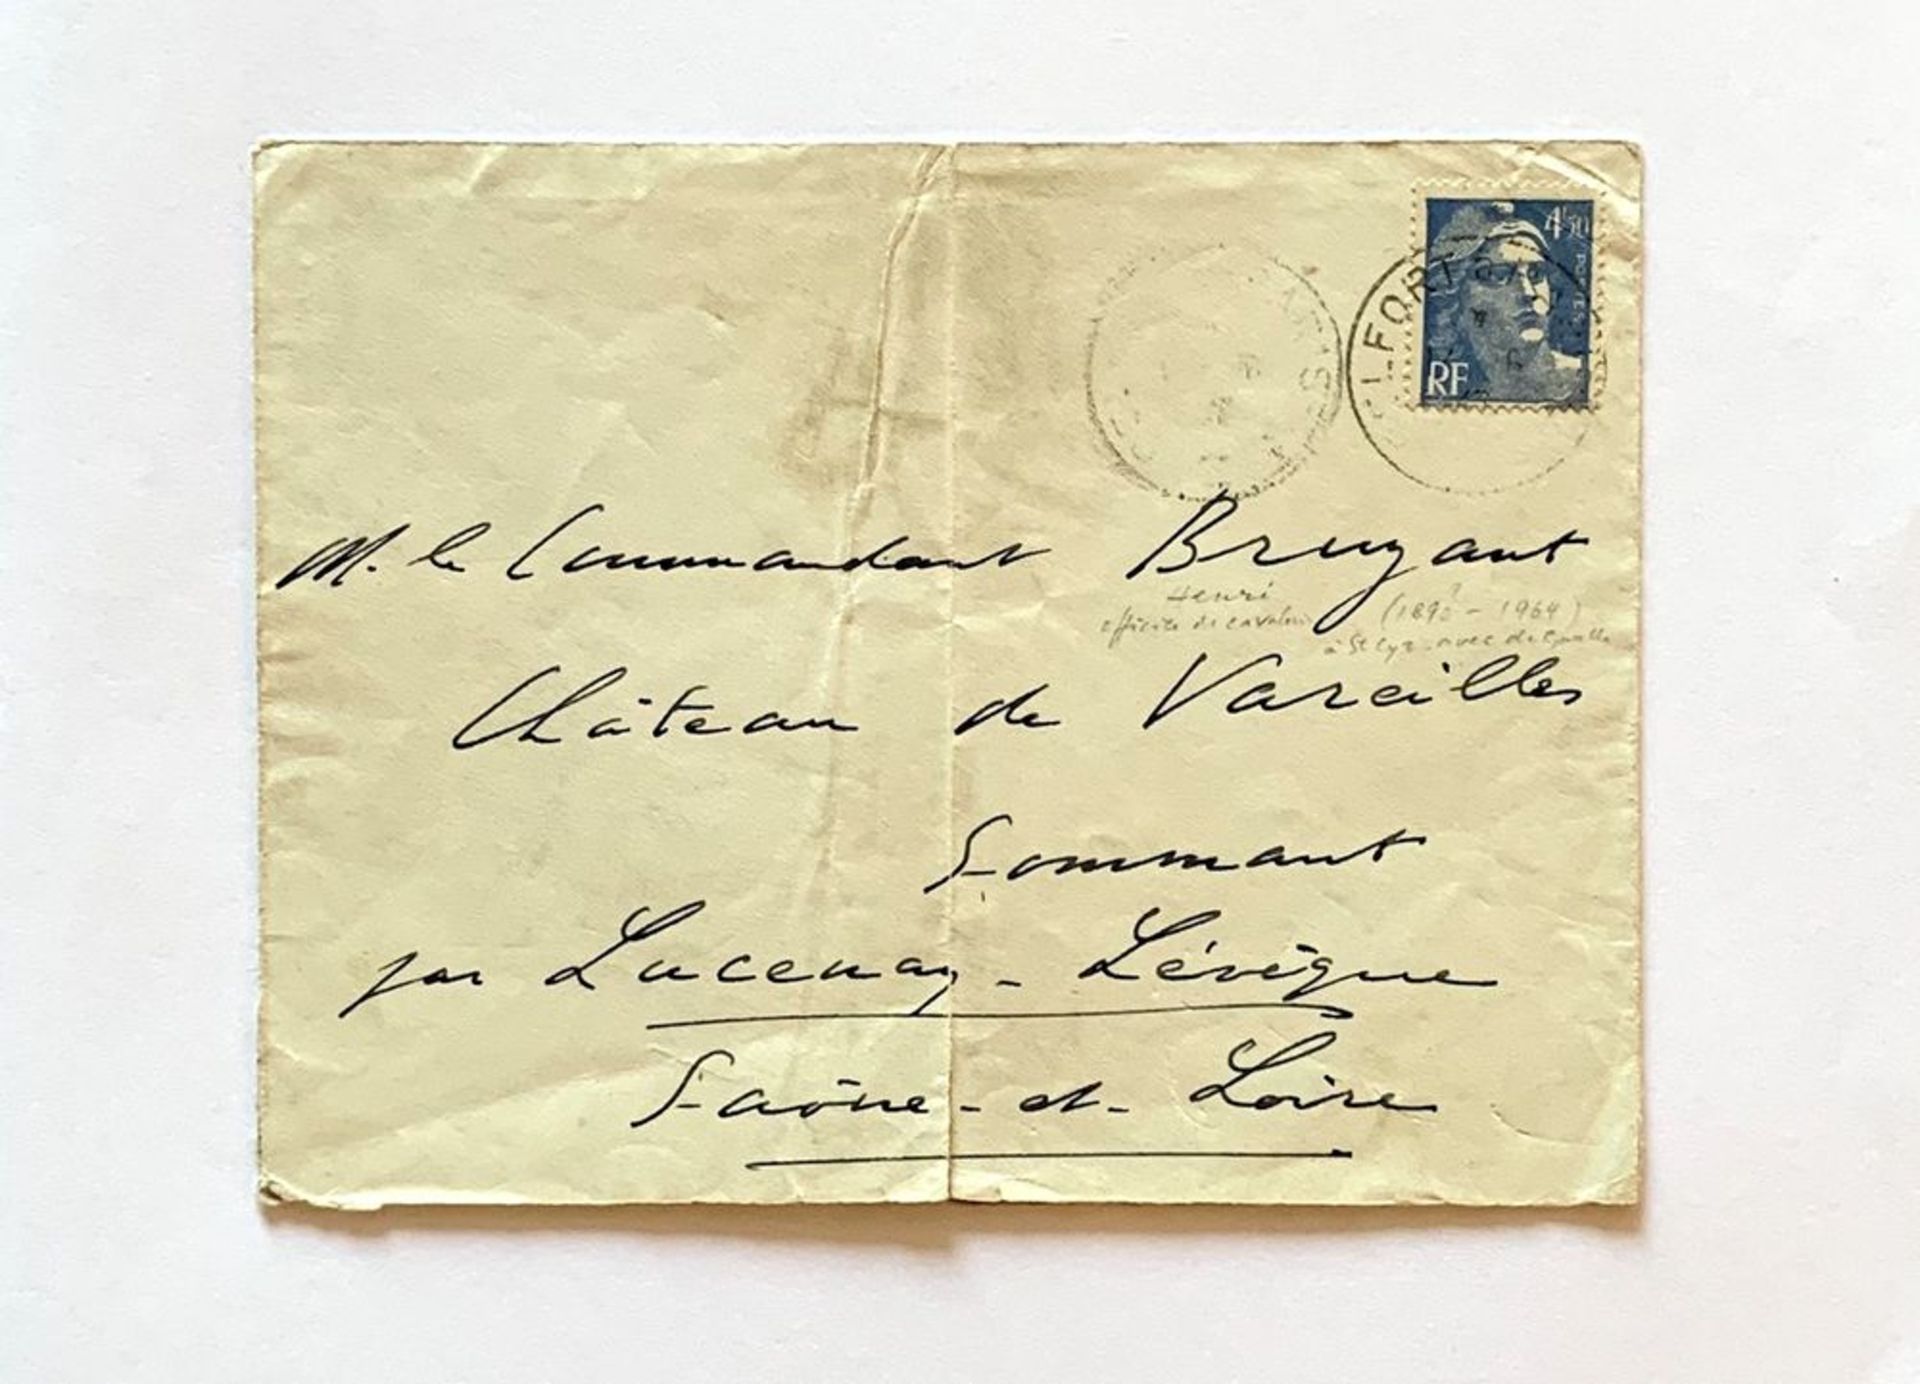 4F50
POSTES
RF
M. le Commandant Bruyant
Henri
officier de cavalerie
(189 - 1964)
à St Cyr avec de Gaulle
Château de Vareilles
Sommant
par Lucenay-Lévêque
Saône-et-Loire